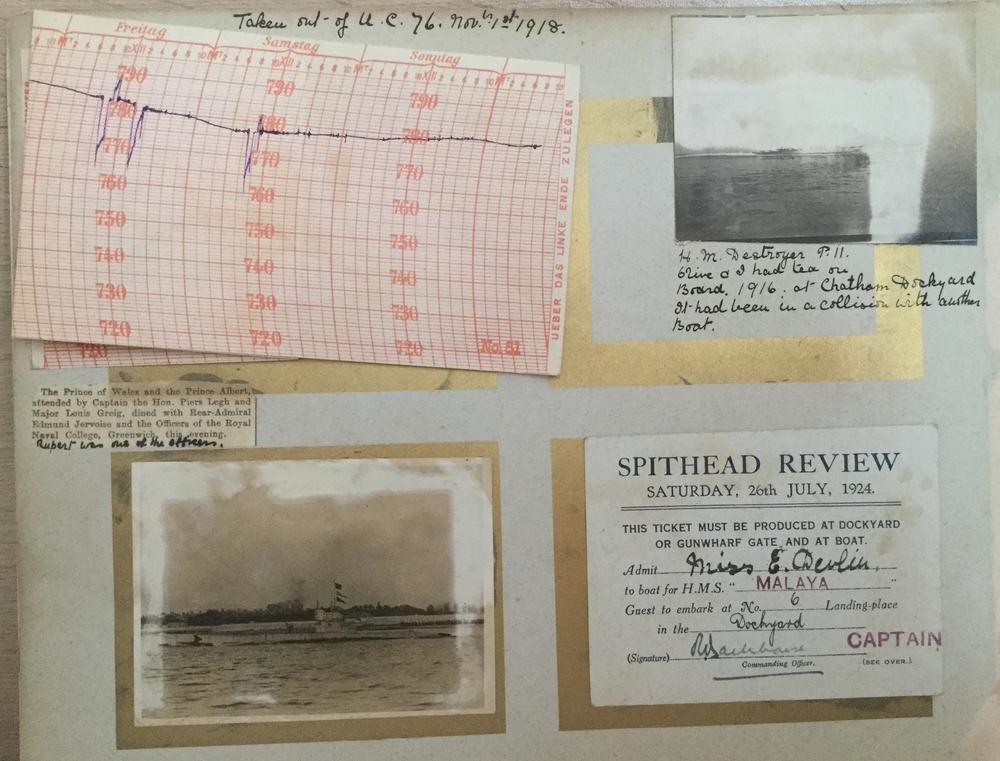 Taken out of U.C. 76. Nov. 1st 1918.
Freitag Samstag Sonntag
790 790 790
780 780 780
770 770 770
760 760 760
750 750 750
740 740 740
730 730 730
720 720 720
No. 81
UEBER DAS LINKE ENDE ZULEGEN
720
H. M. Destroyer P. 11.
Olive & I had tea on
Board. 1916. at Chatham Dockyard
It had been in a collision with another
Boat.
The Prince of Wales and the Prince Albert,
attended by Captain the Hon. Piers Legh and
Major Louis Greig, dined with Rear-Admiral
Edmund Jervoise and the Officers of the Royal
Naval College, Greenwich, this evening.
Rupert was one of the officers.
SPITHEAD REVIEW
SATURDAY, 26th JULY, 1924.
THIS TICKET MUST BE PRODUCED AT DOCKYARD
OR GUNWHARF GATE AND AT BOAT.
Admit Miss E. Devlin.
to boat for H.M.S. " MALAYA "
Guest to embark at No. 6 Landing-place
in the Dockyard
(Signature) CAPTAIN
Commanding Officer. (SEE OVER.)